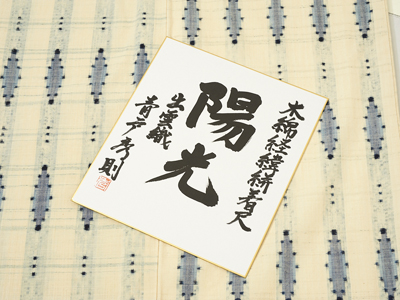 木綿経緯絣着尺
陽光
出雲織
青戸秀則